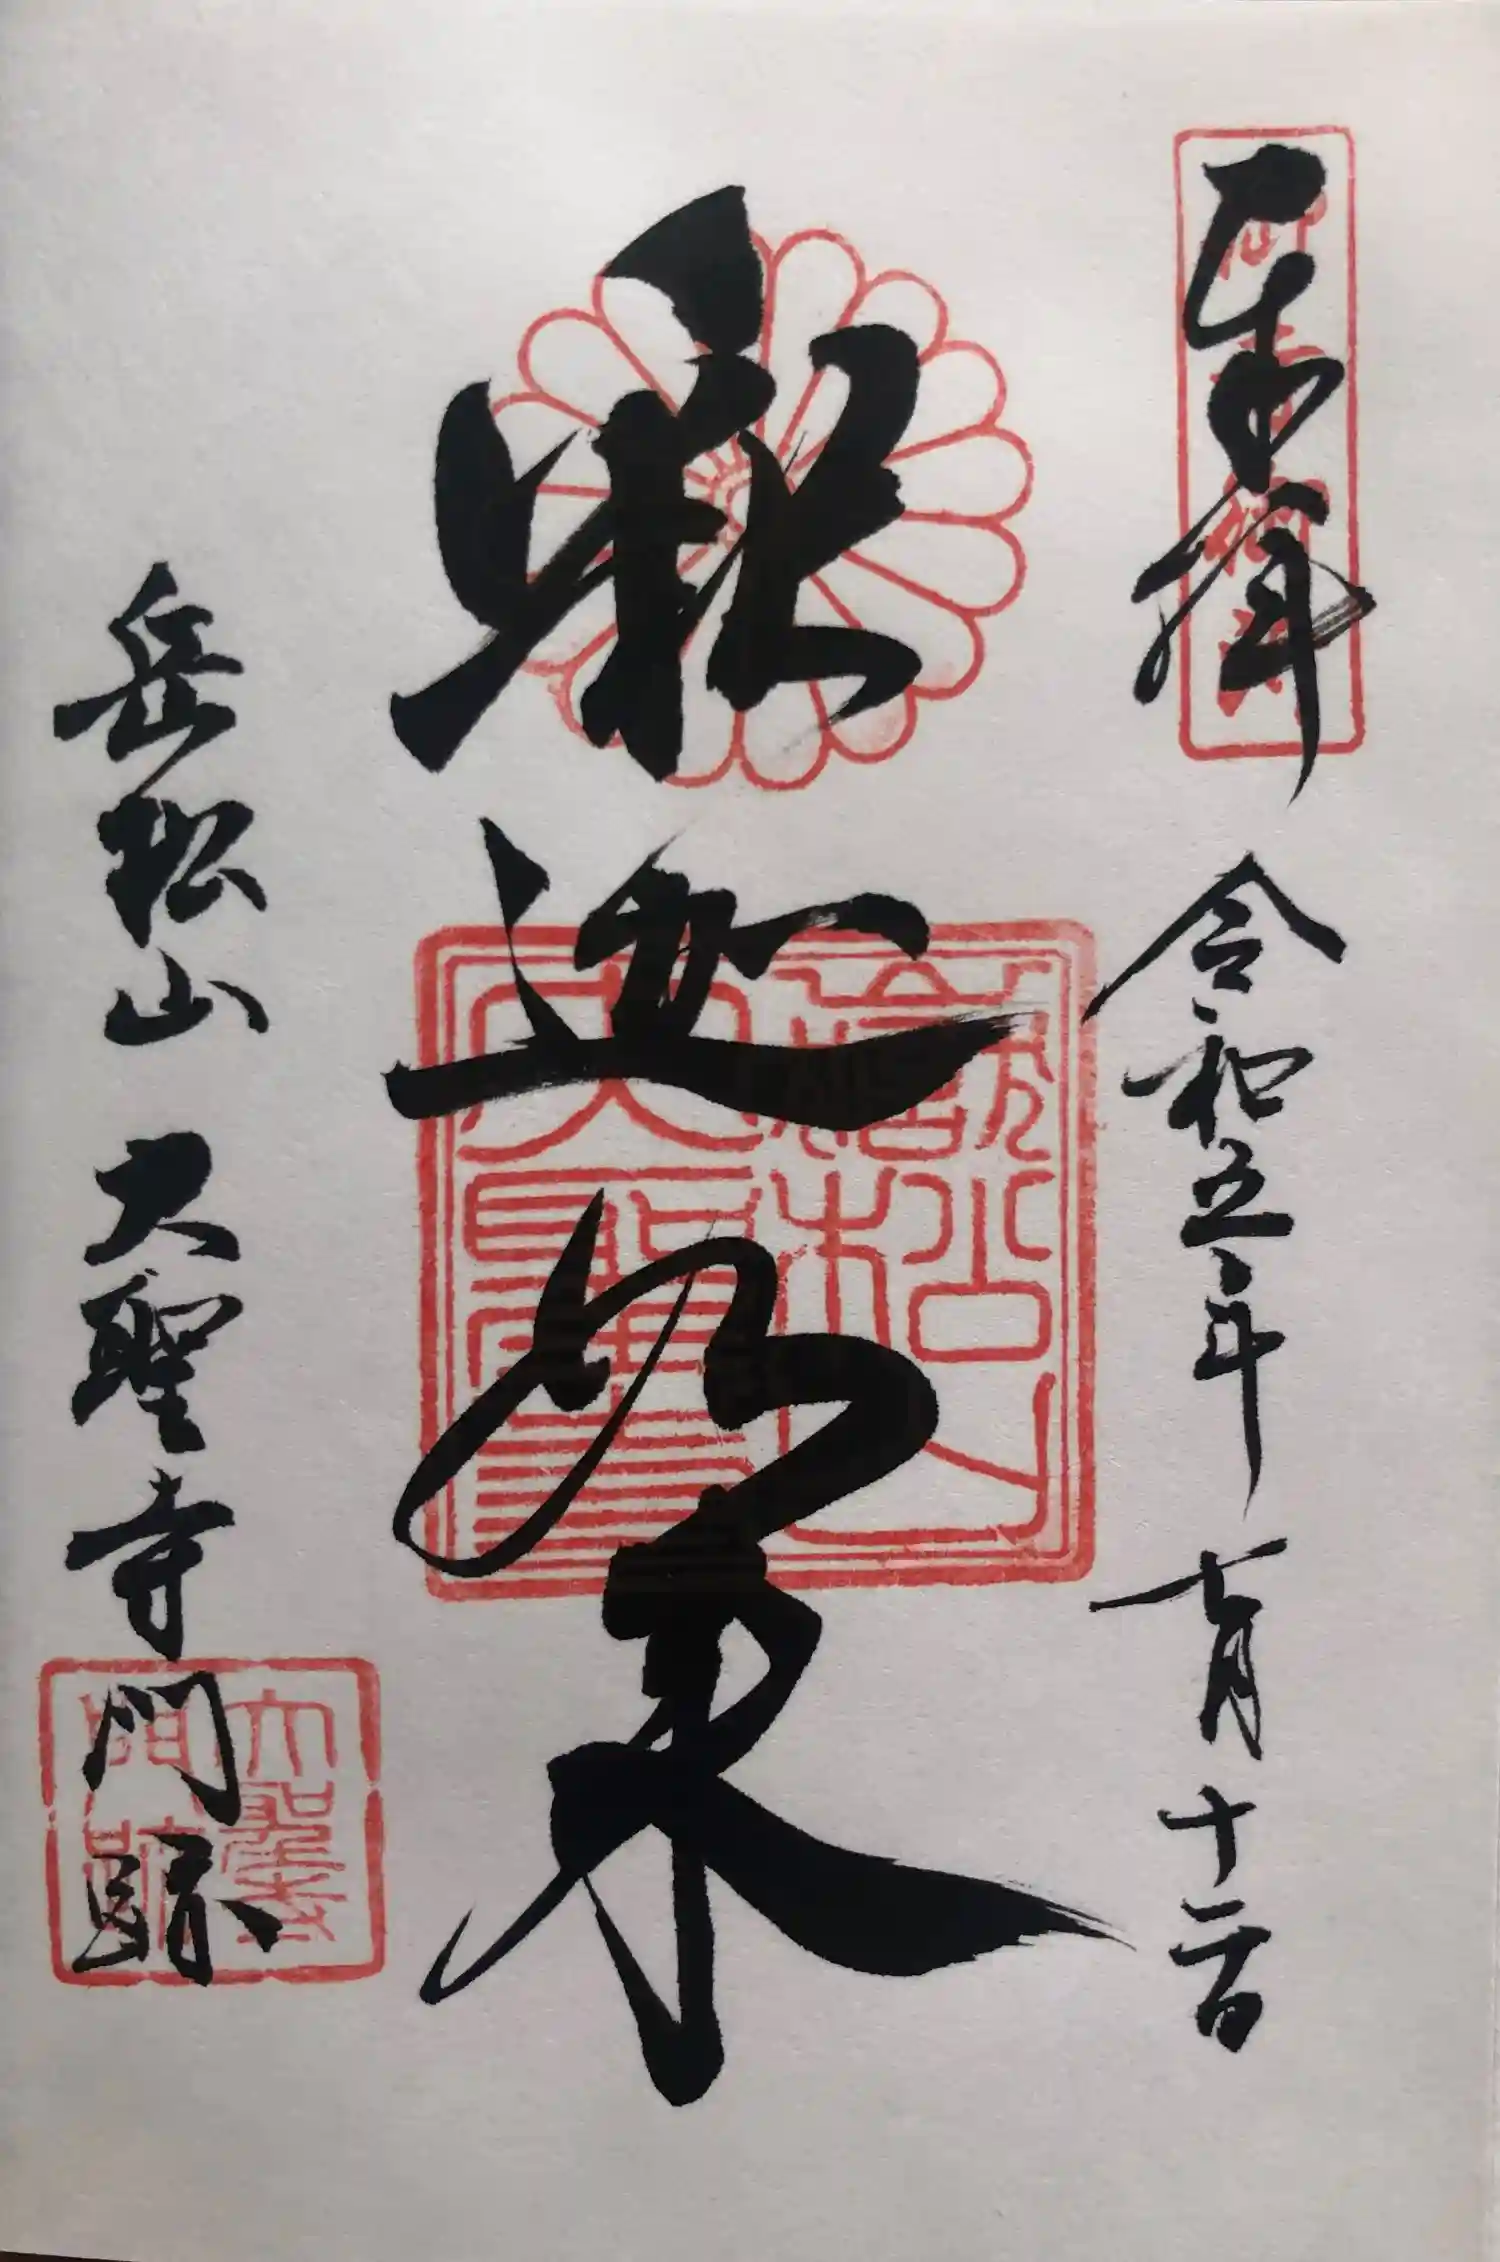 奉拝 令和五年 十一月 十二日
釈迦如来
嶽松山
大聖寺
岳松山 大聖寺門跡
大聖寺
門跡